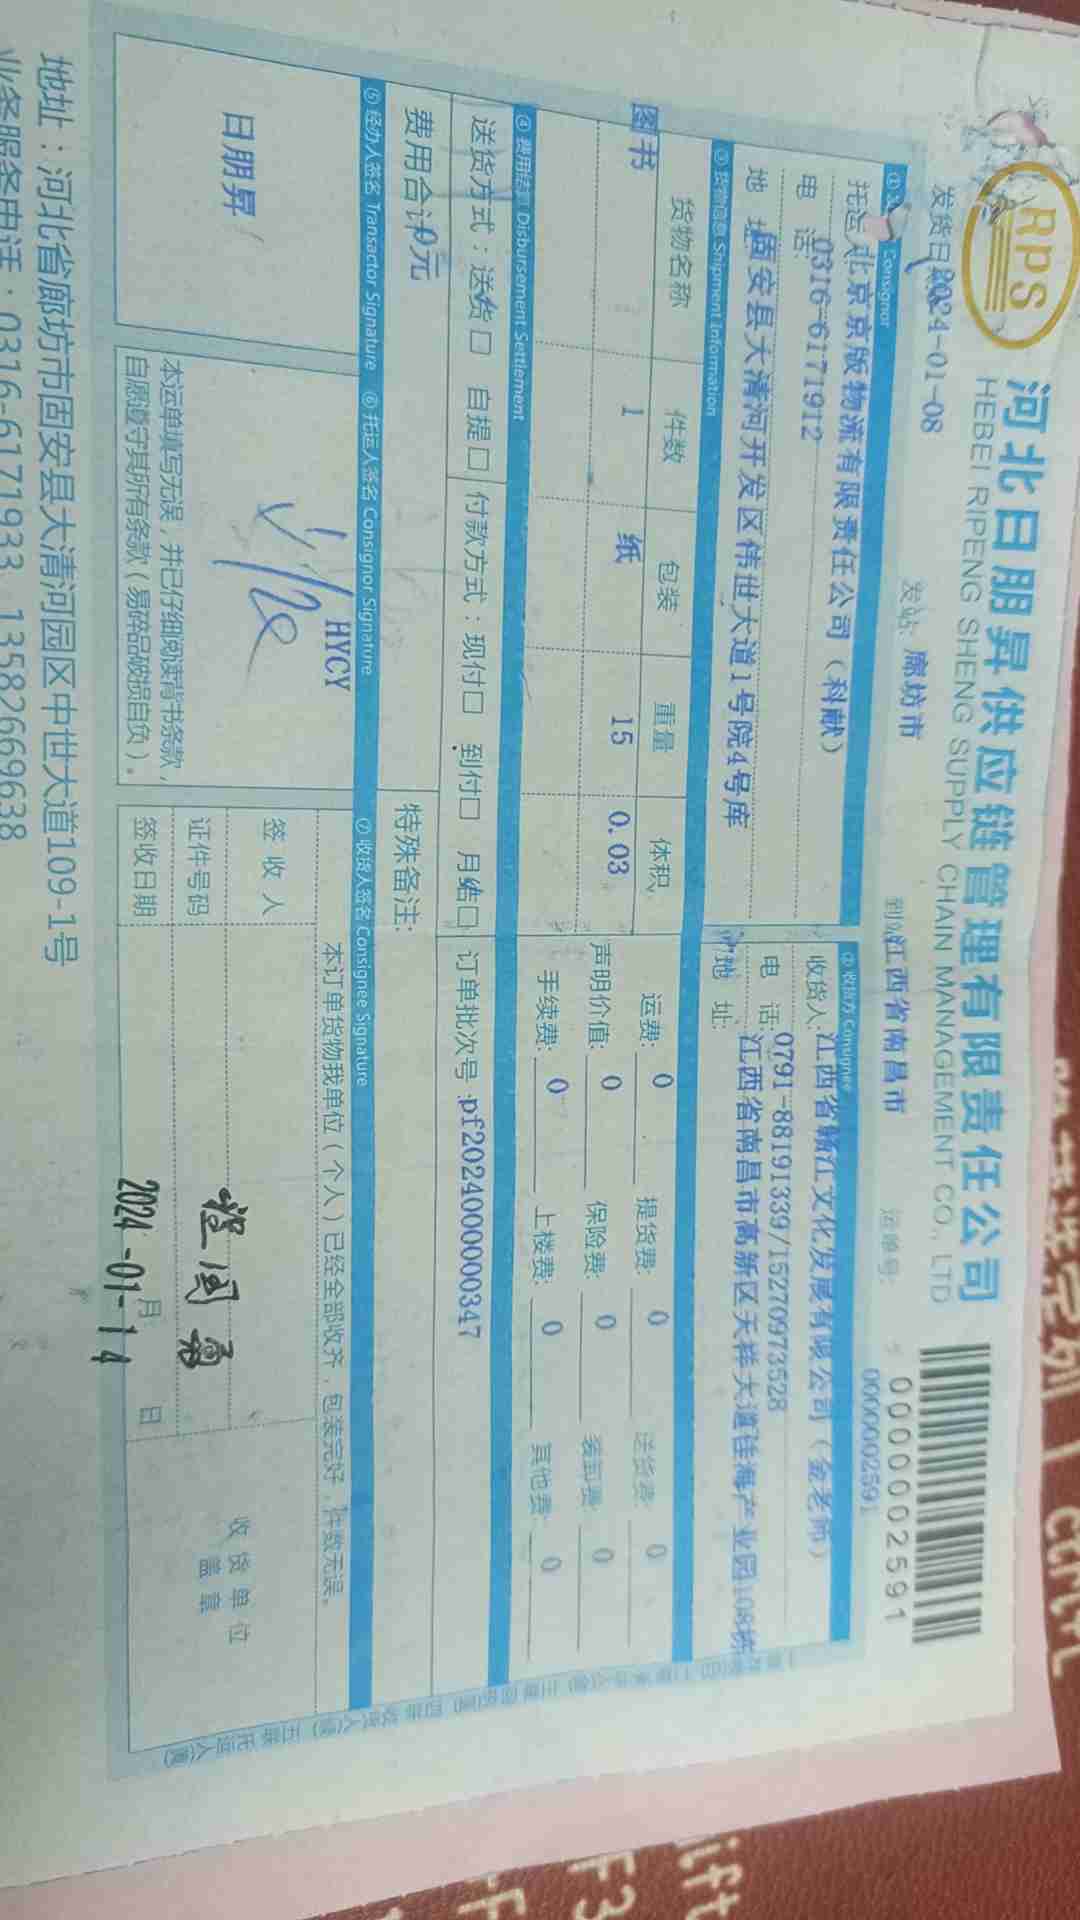 RPS
河北日朋昇供应链管理有限责任公司
HEBEI RIPENG SHENG SUPPLY CHAIN MANAGEMENT CO., LTD
发货日 2024-01-08 发站: 廊坊市 到站 江西省南昌市 运单号: 000000002591
0000002591
① Consignor
托运 北京京版物流有限责任公司（科献）
电 话: 0316-6171912
地 址 固安县大清河开发区伟世大道1号院4号库
② 收货方 Consignee
收货人: 江西省新江文化发展有限公司（金老师）
电 话: 0791-88191339/15270973528
地 址: 江西省南昌市高新区天祥大道佳海产业园108栋
③ 货物信息 Shipment Information
货物名称 件数 包装 重量 体积
图书 1 纸 15 0.03
运费: 0 提货费: 0 送货费: 0
声明价值: 0 保险费: 0 装卸费: 0
手续费: 0 上楼费: 0 其他费: 0
④ 费用结算 Disbursement Settlement
送货方式：送货□ 自提□ 付款方式：现付□ 到付□ 月结□ 订单批次号:pf202400000347
费用合计 0元
特殊备注:
⑤ 经办人签名 Transactor Signature ⑥ 托运人签名 Consignor Signature ⑦ 收货人签名 Consignee Signature
日朋昇
HYCY
本运单填写无误，并已仔细阅读背书条款，
自愿遵守其所有条款（易碎品破损自负）。
本订单货物我单位（个人）已经全部收齐，包装完好，件数无误。
签 收 人
证件号码
签收日期 2024-01-14 月 日
收 货 单 位
盖 章
地址：河北省廊坊市固安县大清河园区中世大道109-1号
业务服务电话：0316-6171933 13582669638